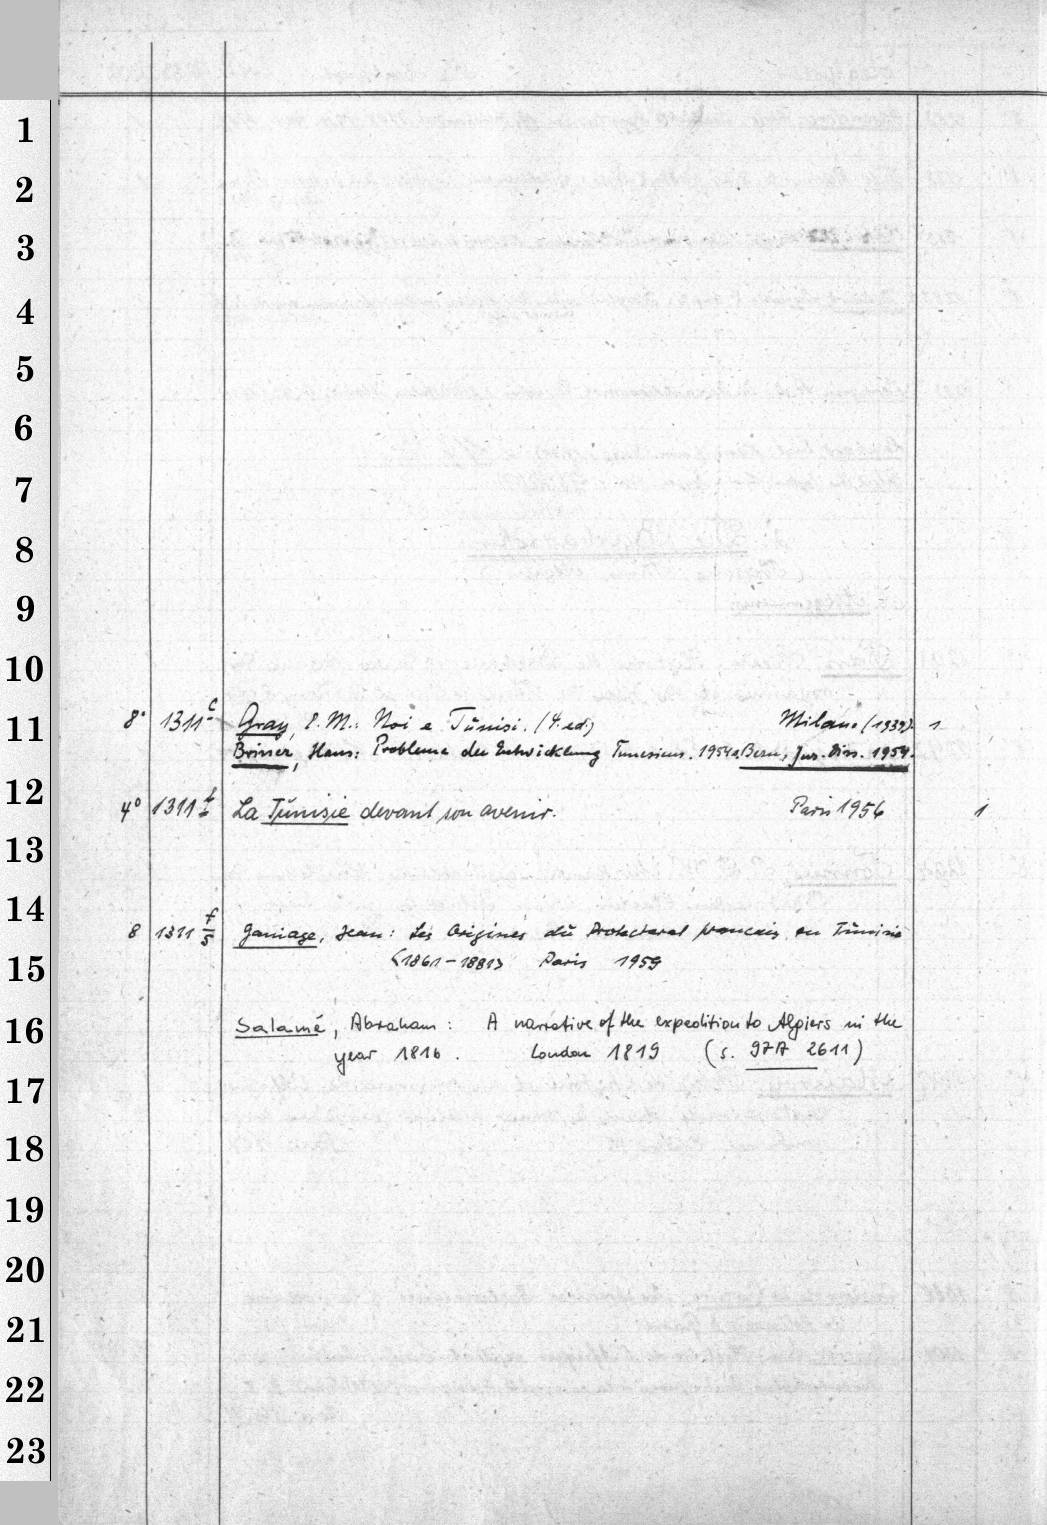 1
2
3
4
5
6
7
8
9
10
11
8° 1311 c Gray, E. M.: Noi e Tunisi. (4. ed) Milano (1939). 1
Briner, Hans: Probleme der Entwicklung Tunesiens. 1954. Bern, Jur. Diss. 1954.
12
4° 1311 La Tunisie devant son avenir. Paris 1956 1
13
14
8 1311 f/5 Ganiage, Jean: Les Origines du Protectorat francais en Tunisie
<1861-1881> Paris 1959
15
16
Salamé, Abraham: A narrative of the expedition to Algiers in the
year 1816. London 1819 (s. 97A 2611)
17
18
19
20
21
22
23